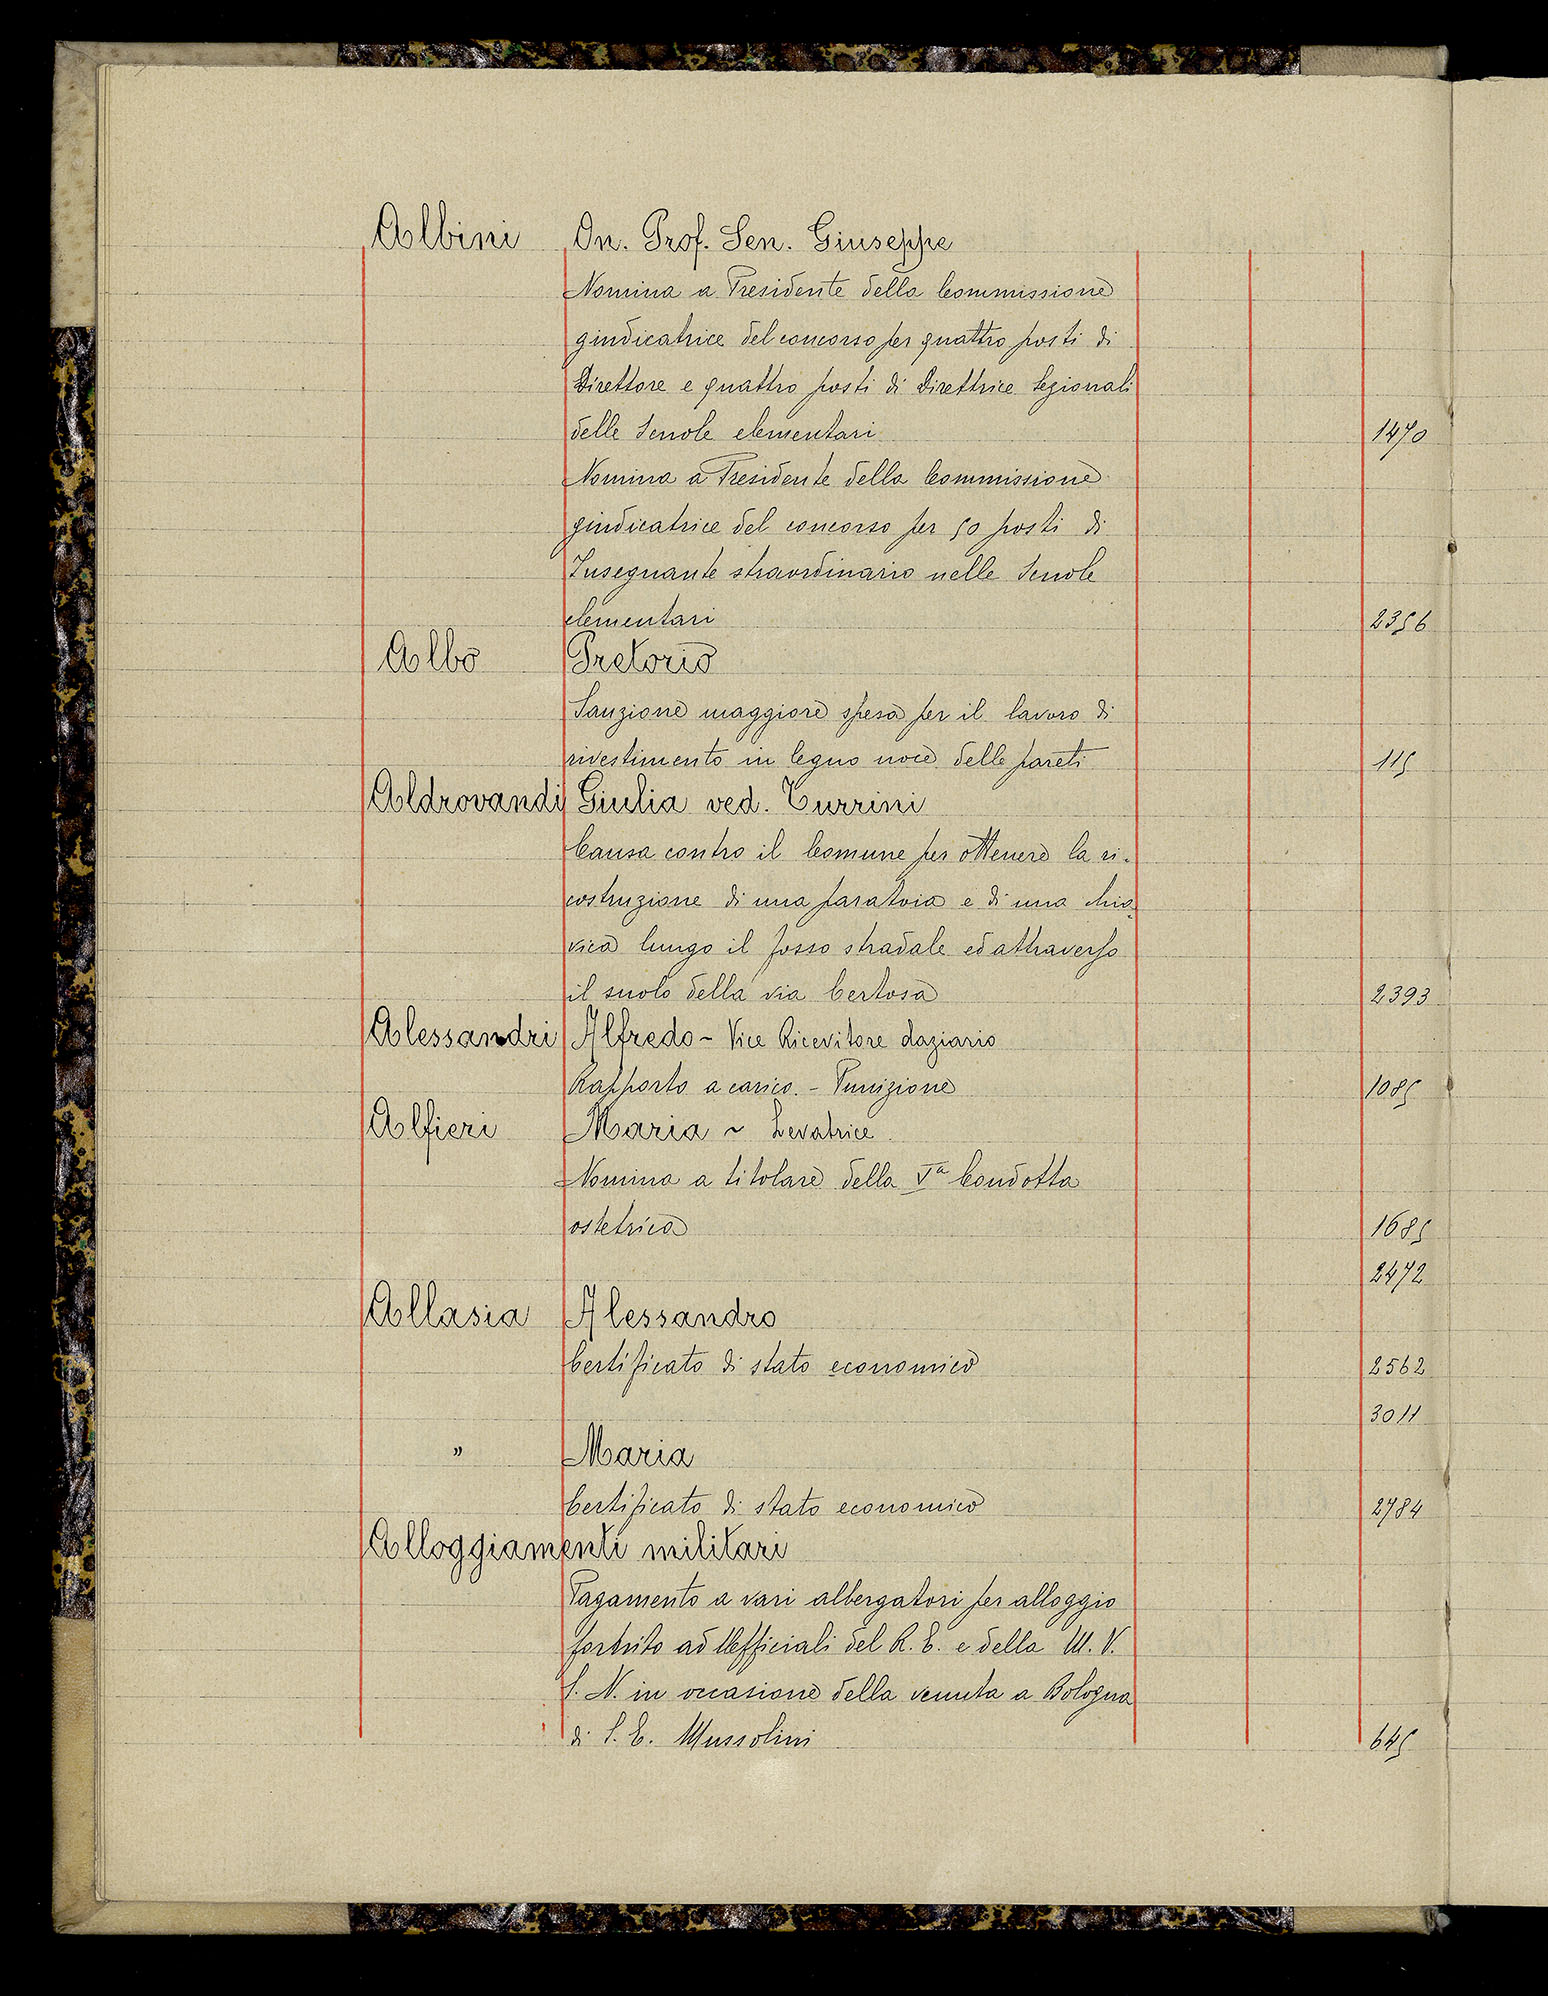 Albini On. Prof. Sen. Giuseppe
Nomina a Presidente della Commissione
giudicatrice del concorso per quattro posti di
Direttore e quattro posti di Direttrice Sezionali
delle Scuole elementari 1470
Nomina a Presidente della Commissione
giudicatrice del concorso per 50 posti di
Insegnante straordinario nelle Scuole
elementari 2356
Albo Pretorio
Sanzione maggiore spesa per il lavoro di
rivestimento in legno noce delle pareti 115
Aldrovandi Giulia ved. Turrini
Causa contro il Comune per ottenere la ri-
costruzione di una paratoia e di una chia-
vica lungo il fosso stradale ed attraverso
il suolo della via Certosa 2393
Alessandri Alfredo - Vice Ricevitore daziario
Rapporto a carico. - Punizione 1085
Alfieri Maria ~ Levatrice
Nomina a titolare della Vª Condotta
ostetrica 1685
2472
Allasia Alessandro
Certificato di stato economico 2562
3011
" Maria
Certificato di stato economico 2784
Alloggiamenti militari
Pagamento a vari albergatori per alloggio
fornito ad Ufficiali del R. E. e della M. V.
S. N. in occasione della venuta a Bologna
di S. E. Mussolini 645